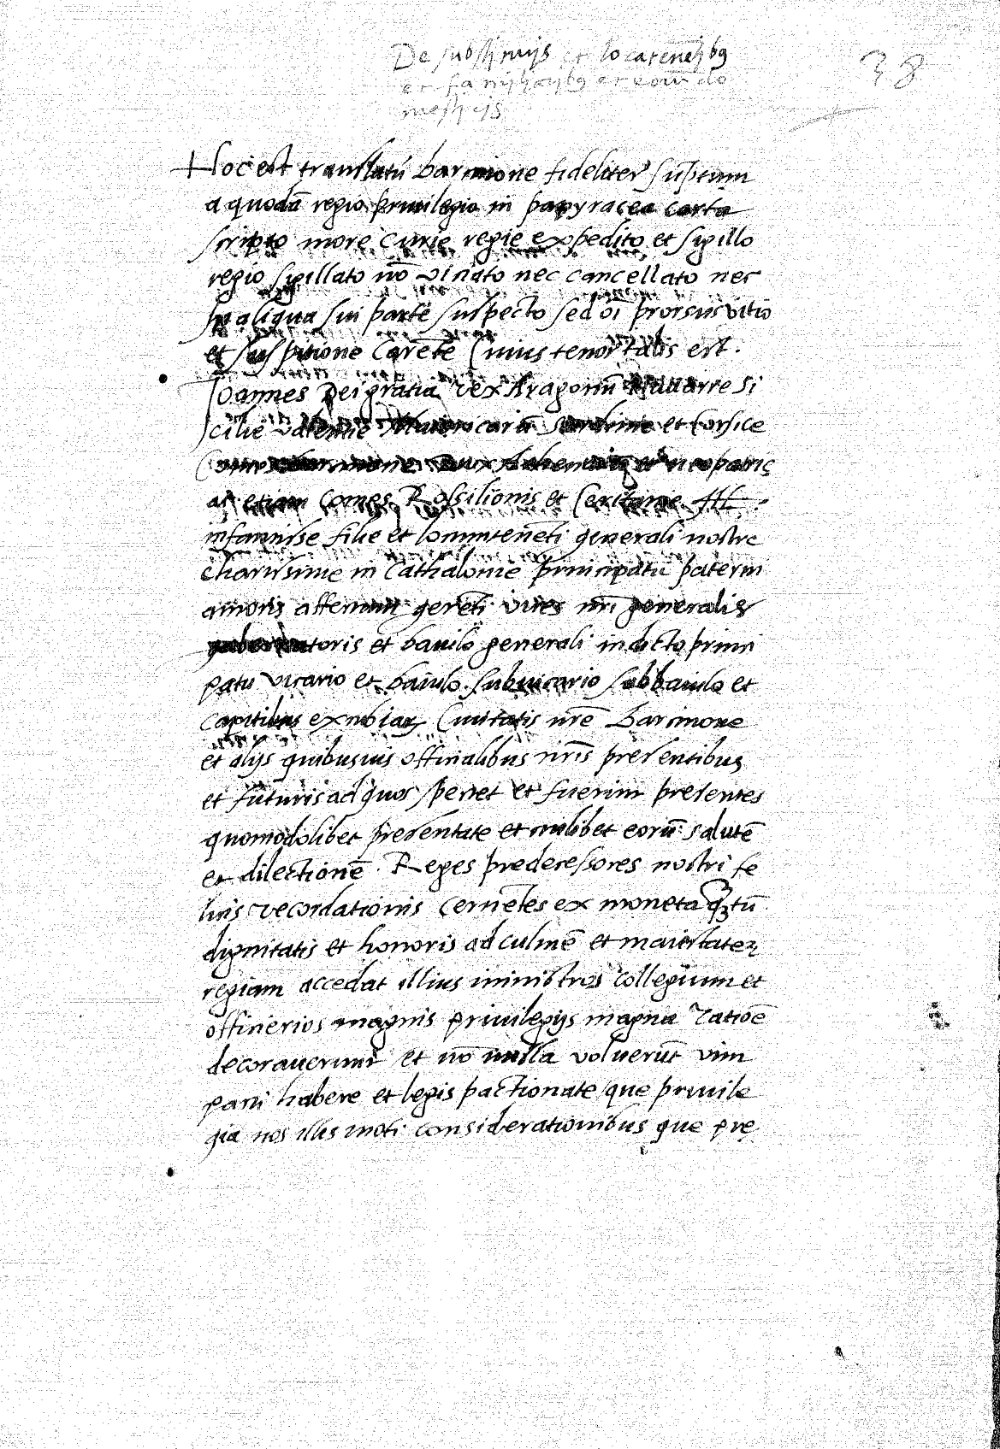 De substitutis et locatenētibꝯ
et familiaribꝯ et eorū do
mesticis
38
Hoc est translatū barcinone fideliter sūptum
a quodā regio privilegio in papyracea carta
scripto more Curie regie expedito et sigillo
regio sigillato nō viciato nec cancellato nec
in aliqua sui parte suspecto sed oī prorsus vitio
et suspitione carēte Cuius tenor talis est.
Joannes Dei gratia rex Aragonū Navarre Si
cilie Valentie Maioricarū Sardinie et Corsice
Comes barcinone Dux Athenarū et neopatrie
ac etiam Comes Rossilionis et Ceritanie
filie et locumtenēti generali nostre
charissime in Cathalonie principatu paterni
amoris gerēti vices nri generalis
gubernatoris et baiulo generali in dicto princi
patu vicario et baiulo subvicario subbaiulo et
Civitatis nrē barcinone
et alijs quibusvis officialibus nrīs presentibus
et futuris ad quos spectet et fuerint presentes
quomodolibet presentate et cuilibet eorū salutē
et dilectionē. Reges predecessores nostri fe
licis recordationis cernētes ex moneta qtū
dignitatis et honoris ad culmē et maiestatem
regiam accedat illius ministros collegium et
officierios magnis privilegijs magna ratiōe
decoraverunt et nō nulla voluerūt vim
pacti habere et legis pactionate que privile
gia nos illis moti considerationibus que pre